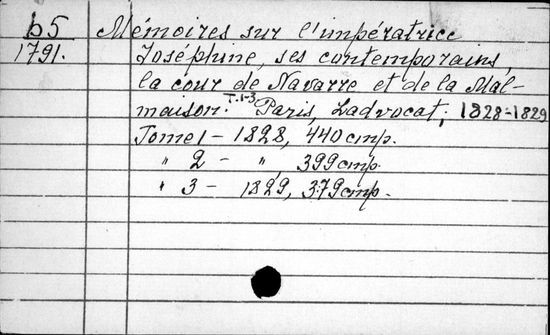 b5 Mémoires sur l'impératrice
1791. Joséphine, ses contemporains,
la cour de Navarre et de la Mal-
maison. T.1-3 Paris, Ladvocat, 1828-1829
Tome 1 - 1828, 440 cmp.
" 2 - " 399 cmp.
" 3 - 1829, 379 cmp.